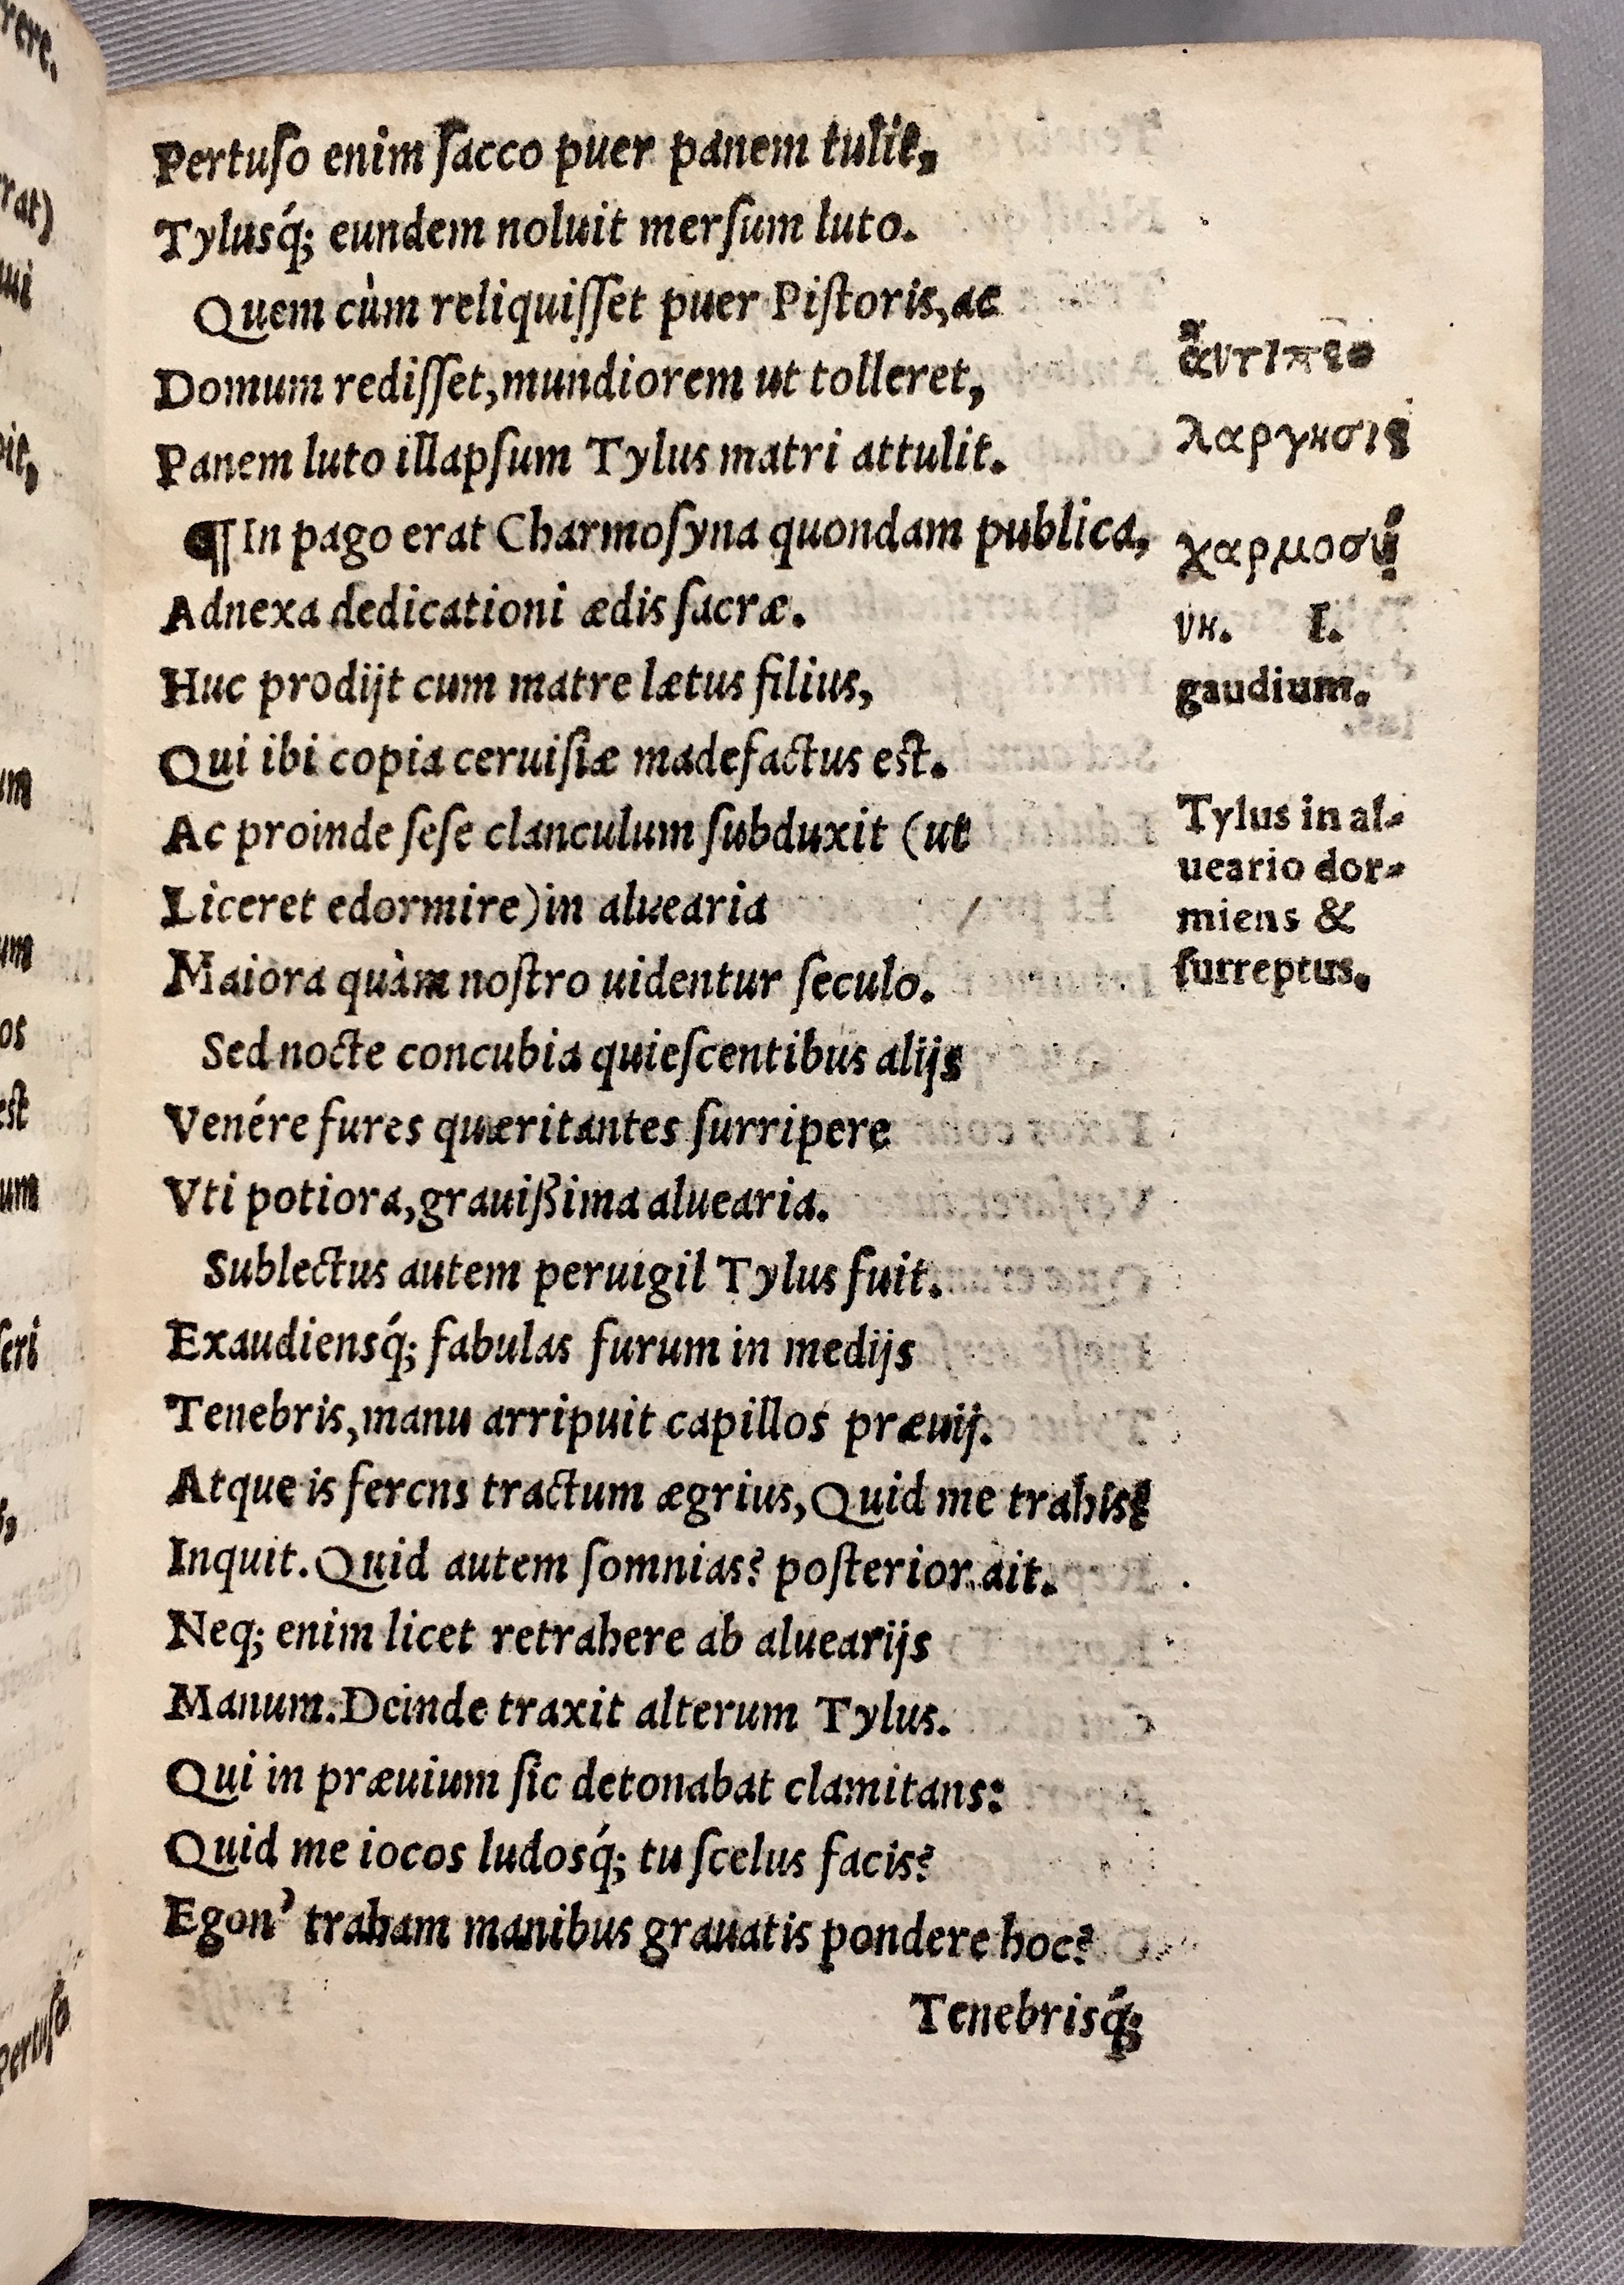 Pertuſo enim ſacco puer panem tulit,
Tylusq́; eundem noluit merſum luto.
Quem cùm reliquiſſet puer Piſtoris, ac
Domum rediſſet, mundiorem ut tolleret,
Panem luto illapſum Tylus matri attulit.
¶ In pago erat Charmoſyna quondam publica,
Adnexa dedicationi ædis ſacræ.
Huc prodijt cum matre lætus filius,
Qui ibi copia ceruiſiæ madefactus eſt.
Ac proinde ſeſe clanculum ſubduxit (ut
Liceret edormire) in aluearia
Maiora quàm noſtro uidentur ſeculo.
Sed nocte concubia quieſcentibus alijs
Venére fures quæritantes ſurripere
Vti potiora, grauißima aluearia.
Sublectus autem peruigil Tylus fuit.
Exaudiensq́; fabulas furum in medijs
Tenebris, manu arripuit capillos præuij.
Atque is ferens tractum ægrius, Quid me trahis?
Inquit. Quid autem ſomnias? poſterior ait.
Neq; enim licet retrahere ab aluearijs
Manum. Deinde traxit alterum Tylus.
Qui in præuium ſic detonabat clamitans:
Quid me iocos ludosq́; tu ſcelus facis?
Egon' traham manibus grauatis pondere hoc?
Tenebrisq́;
λαργησις
χαρμοσύ
νη. I.
gaudium.
Tylus in al-
ueario dor-
miens &
ſurreptus.